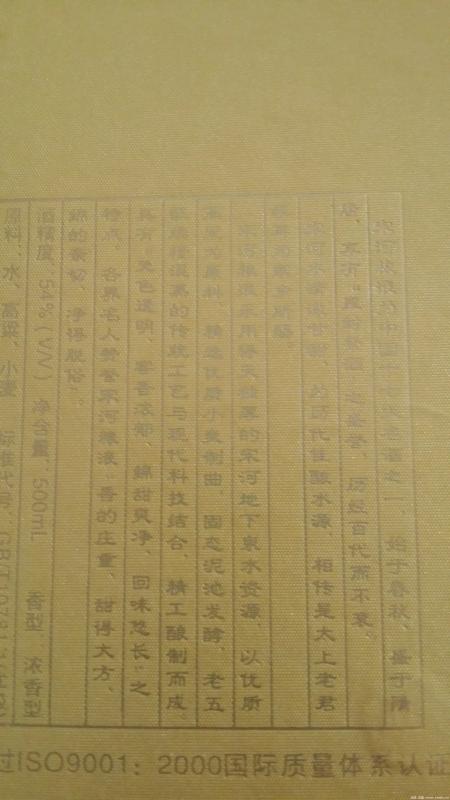 宋河粮液为中国十七大名酒之一，始于春秋，盛于隋
唐，享有“
之盛誉，历经百代而不衰。
宋河水清冽甘甜，为历代佳酿水源，相传是太上老君
宋河粮液采用得天独厚的宋河地下泉水资源，以优质
高粱为原料，精选优质小麦制曲，固态泥池发酵，老五
甑续糟混蒸的传统工艺与现代科技结合，精工酿制而成。
具有“无色透明、窖香浓郁、绵甜爽净、回味悠长”之
特点。各界名人赞誉宋河粮液“香的庄重，甜得大方，
绵的亲切，净得脱俗”。
酒精度：54%(V/V) 净含量：500mL 香型：浓香型
原料：水、高粱、小麦 标准代号：GB/T10781.1(优级)
过ISO9001：2000国际质量体系认证